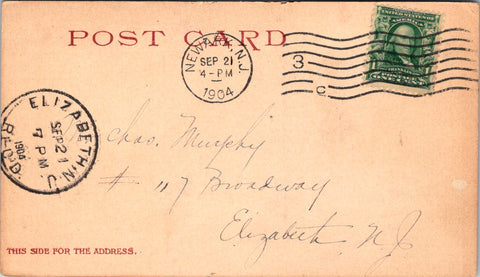 POST CARD
NEWARK, N.J.
SEP 21
4-PM
1904
3
C
UNITED STATES OF AMERICA
ELIZABETH N.J.
SEP 21
7 PM
1904
REC'D
Chas. Murphy
# 117 Broadway
Elizabeth N J
THIS SIDE FOR THE ADDRESS.